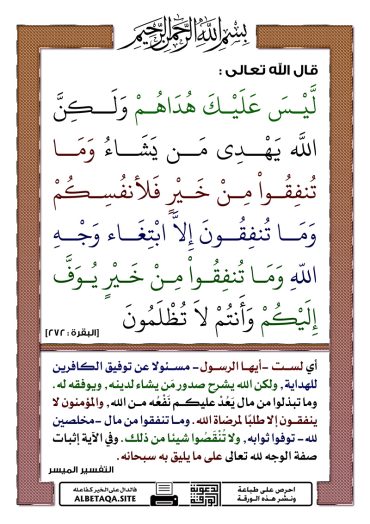 بسم الله الرحمن الرحيم
قال الله تعالى :
لَّيْسَ عَلَيْكَ هُدَاهُمْ وَلَـكِنَّ
اللَّهَ يَهْدِي مَن يَشَاءُ وَمَا
تُنفِقُواْ مِنْ خَيْرٍ فَلأنفُسِكُمْ
وَمَا تُنفِقُونَ إِلاَّ ابْتِغَاء وَجْهِ
اللّهِ وَمَا تُنفِقُواْ مِنْ خَيْرٍ يُوَفَّ
إِلَيْكُمْ وَأَنتُمْ لاَ تُظْلَمُونَ
[البقرة : ٢٧٢]
أي لست - أيها الرسول - مسئولا عن توفيق الكافرين
للهداية , ولكن الله يشرح صدور مَن يشاء لدينه , ويوفقه له .
وما تبذلوا من مال يَعُدْ عليكم نَفْعُه من الله , والمؤمنون لا
ينفقون إلا طلبًا لمرضاة الله . وما تنفقوا من مال - مخلصين
لله - توفوا ثوابه , ولا تُنْقَصُوا شيئا من ذلك . وفي الآية إثبات
صفة الوجه لله تعالى على ما يليق به سبحانه .
التفسير الميسر
احرص على طباعة
ونشر هذه الورقة
دعوية
الورقة
فالدال على الخير كفاعله
ALBETAQA.SITE